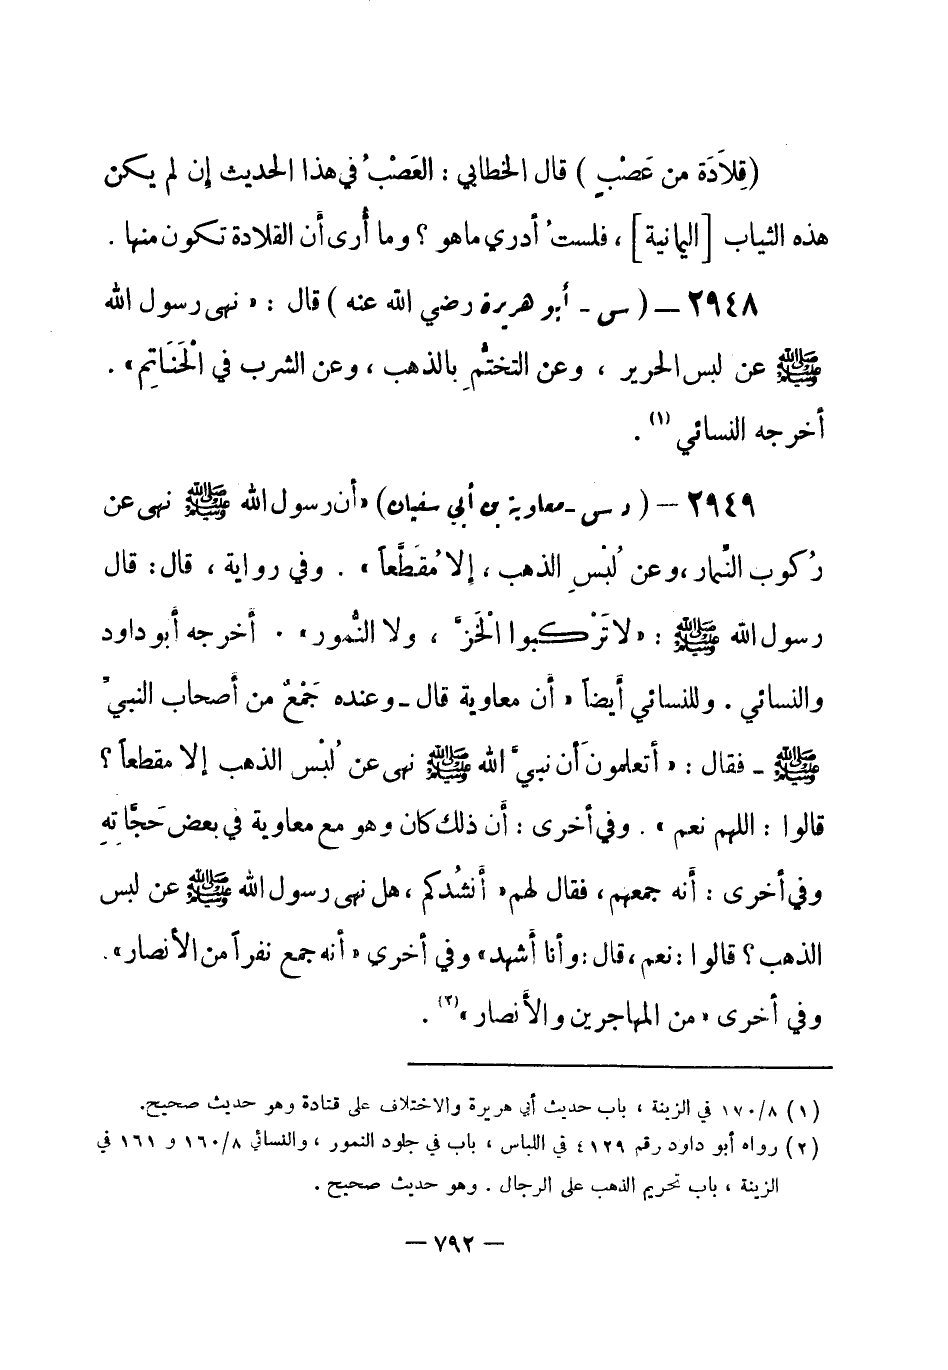 (قِلاَدَة من عَصْبٍ) قال الخطابي : العَصْبُ في هذا الحديث إن لم يكن
هذه الثياب [اليمانية] ، فلستُ أدري ماهو ؟ وما أُرى أن القلادة تكون منها .
٢٩٤٨ – ( س - أبو هريرة رضي الله عنه ) قال : « نهى رسول الله
ﷺ عن لبس الحرير ، وعن التختُّمِ بالذهب ، وعن الشرب في الْحَنَاتِم» .
أخرجه النسائي (١) .
٢٩٤٩ – ( د س - معاوية بن أبي سفيان) «أن رسول الله ﷺ نهى عن
رُكوب النِّمار ،وعن لُبْسِ الذهب ، إلا مُقَطَّعاً » . وفي رواية ، قال: قال
رسول الله ﷺ : «لا تَرْكبوا الْخَزَّ ، ولا النُّمور» . أخرجه أبو داود
والنسائي . وللنسائي أيضاً « أن معاوية قال - وعنده جَمْعٌ من أصحاب النبيِّ
ﷺ - فقال : « أتعلمونَ أن نبيَّ الله ﷺ نهى عن لُبْس الذهب إلا مقطعاً ؟
قالوا : اللهم نعم » . وفي أخرى : أن ذلك كان وهو مع معاوية في بعض حَجَّاتِهِ
وفي أخرى : أنه جمعهم ، فقال لهم« أَنشُدكم ، هل نهى رسول الله ﷺ عن لبس
الذهب ؟ قالوا : نعم ، قال : وأنا أشهد» وفي أخرى « أنه جمع نفراً من الأنصار» .
وفي أخرى « من المهاجرين والأنصار »(٢) .
(١) ١٧٠/٨ في الزينة ، باب حديث أبي هريرة والاختلاف على قتادة وهو حديث صحيح.
(٢) رواه أبو داود رقم ٤١٢٩ في اللباس ، باب في جلود النمور ، والنسائي ١٦٠/٨ و ١٦١ في
الزينة ، باب تحريم الذهب على الرجال . وهو حديث صحيح .
– ٧٩٢ –